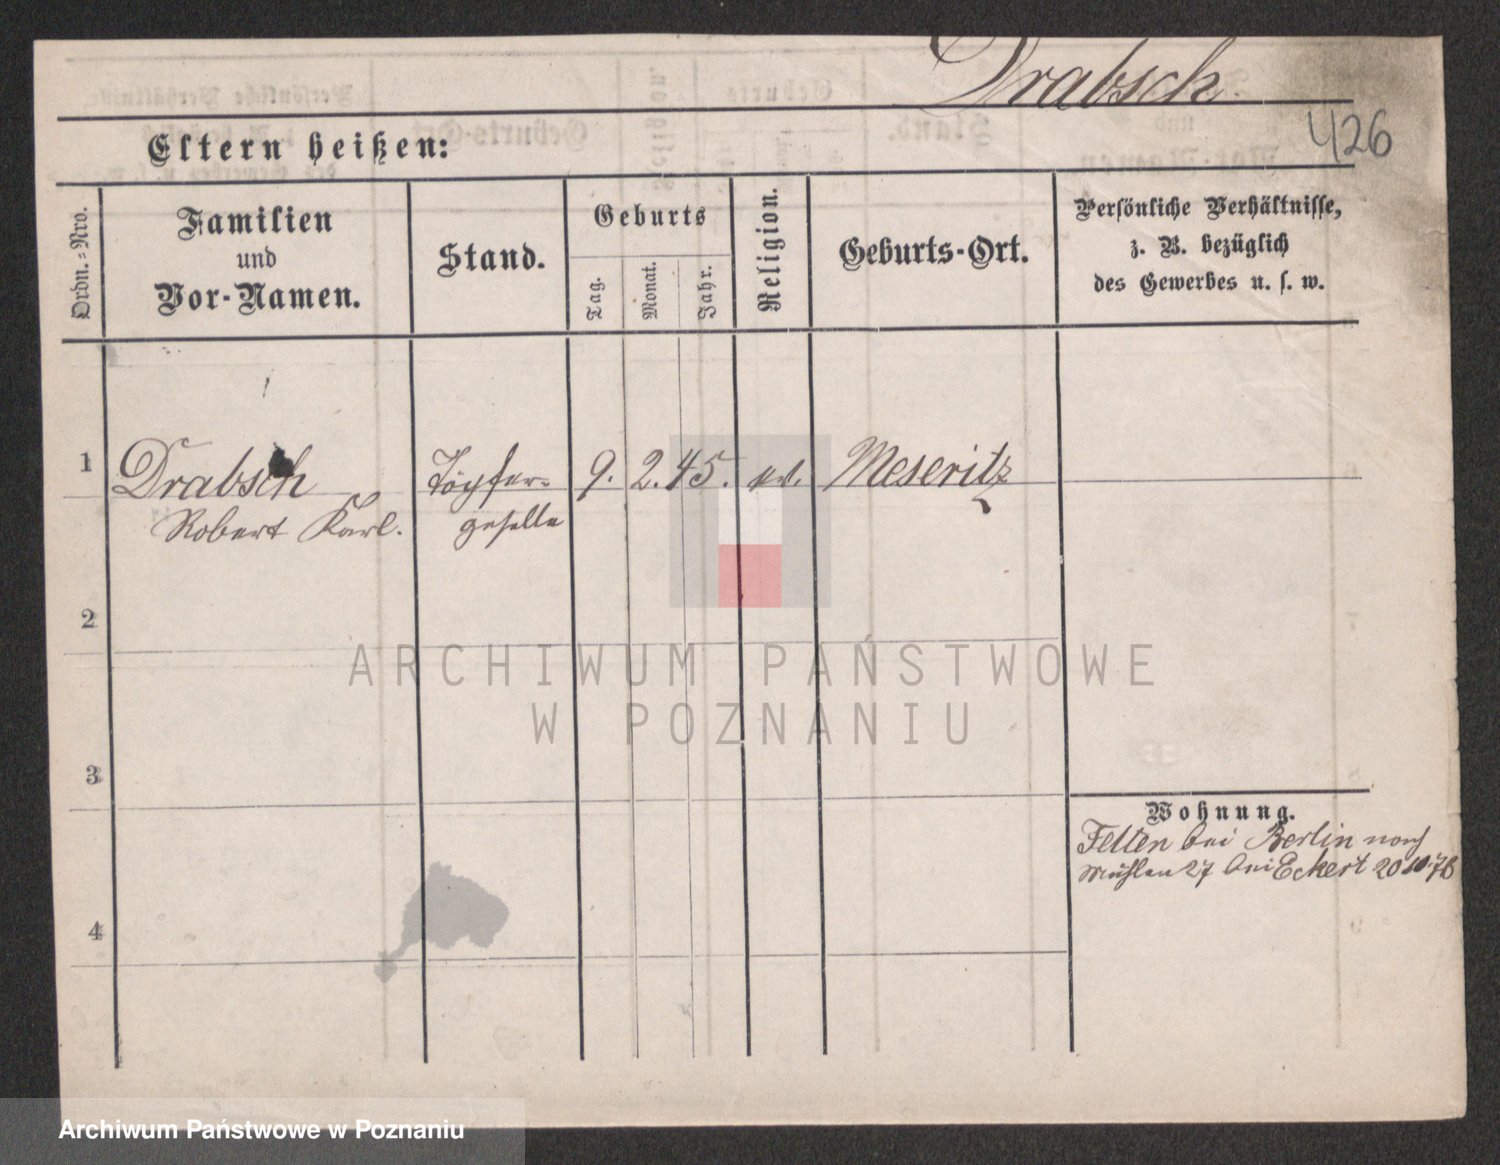 Drabsch.
426
Eltern heißen:
Ordn.=Nro.
Familien
und
Vor-Namen.
Stand.
Geburts
Tag.
Monat.
Jahr.
Religion.
Geburts-Ort.
Persönliche Verhältnisse,
z. B. bezüglich
des Gewerbes u. s. w.
1
Drabsch
Robert Karl.
Töpfer=
geselle
9. 2. 45. ev. Meseritz
2
3
4
Wohnung.
Felten bei Berlin nach
Mühlen 27 bei Eckert 20 10 78
ARCHIWUM PAŃSTWOWE
W POZNANIU
Archiwum Państwowe w Poznaniu